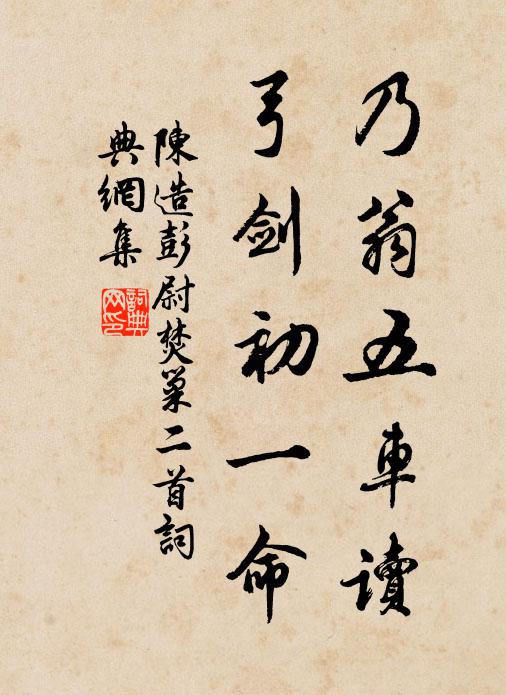 乃翁五車讀
弓劍初一命
陳造彭尉焚巢二首詞
典網集
詞典网印